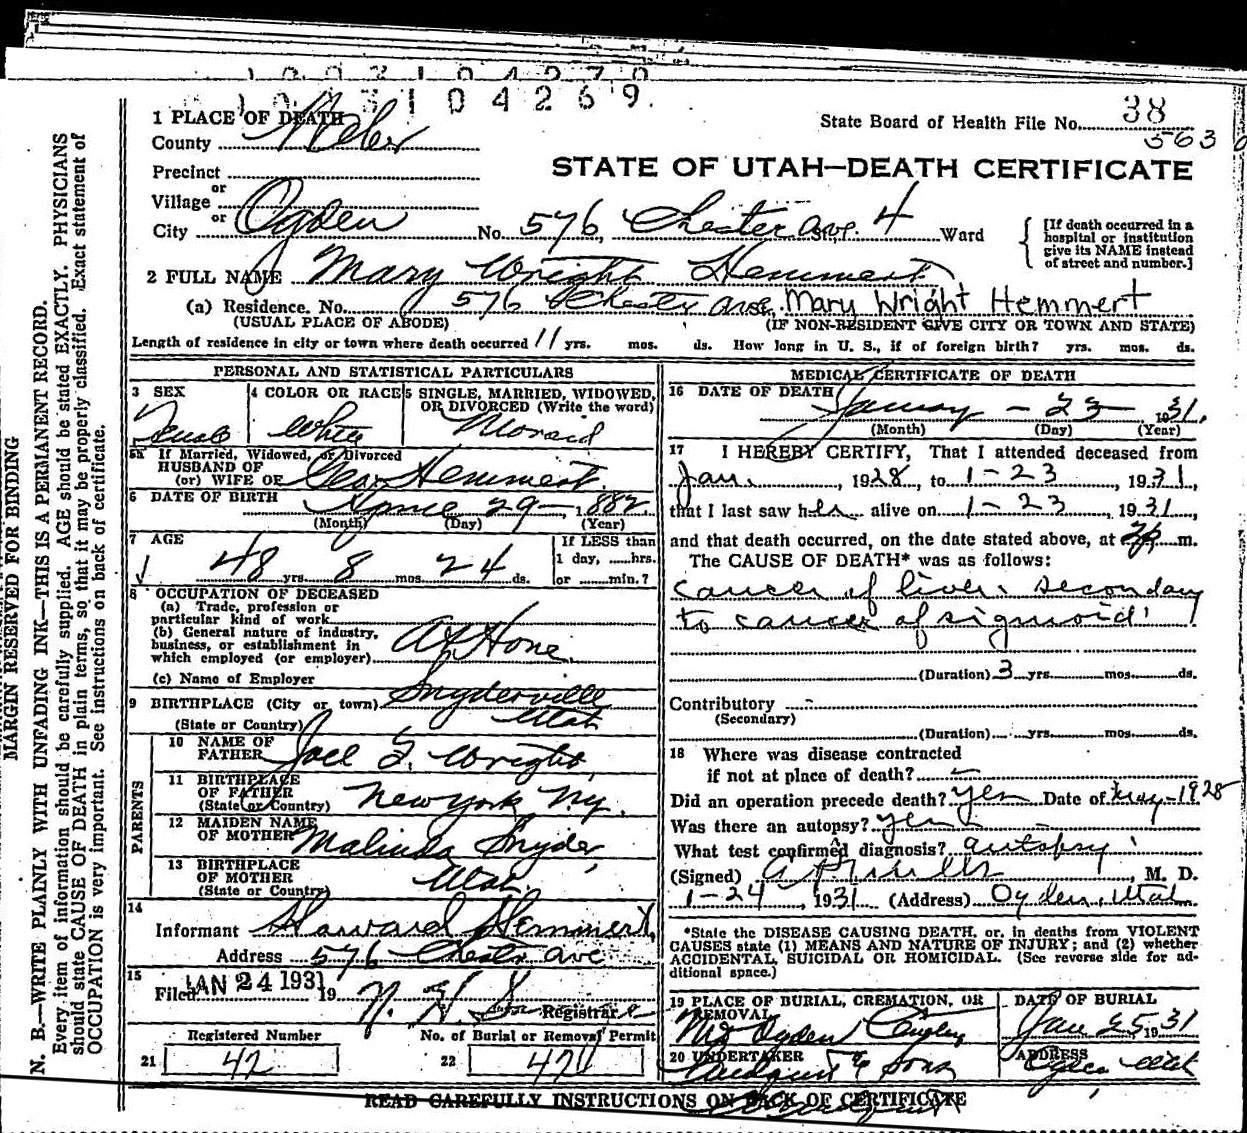 1 0 0 3 1 0 4 2 6 9.
1 PLACE OF DEATH
County Weber
State Board of Health File No. 38
563
STATE OF UTAH—DEATH CERTIFICATE
Precinct
or
Village
or
City Ogden No. 576, Chester ave. 4 Ward
[If death occurred in a hospital or institution give its NAME instead of street and number.]
2 FULL NAME Mary Wright Hemmert
(a) Residence. No. 576 Chester ave. Mary Wright Hemmert
(USUAL PLACE OF ABODE) (IF NON-RESIDENT GIVE CITY OR TOWN AND STATE)
Length of residence in city or town where death occurred 11 yrs. mos. ds. How long in U. S., if of foreign birth? yrs. mos. ds.
PERSONAL AND STATISTICAL PARTICULARS
3 SEX 4 COLOR OR RACE 5 SINGLE, MARRIED, WIDOWED, OR DIVORCED (Write the word)
White
5a If Married, Widowed, or Divorced
HUSBAND OF
(or) WIFE OF Geo. Hemmert.
6 DATE OF BIRTH 29 — 1882
(Month) (Day) (Year)
7 AGE If LESS than
48 yrs. 8 mos. 24 ds. 1 day, ......hrs. or ......min.?
8 OCCUPATION OF DECEASED
(a) Trade, profession or particular kind of work
(b) General nature of industry, business, or establishment in which employed (or employer) At Home
(c) Name of Employer
9 BIRTHPLACE (City or town) Snyderville
(State or Country) Utah
PARENTS
10 NAME OF FATHER Joel Wright
11 BIRTHPLACE OF FATHER (State or Country) New York N.y.
12 MAIDEN NAME OF MOTHER Malinda Snyder
13 BIRTHPLACE OF MOTHER (State or Country) Utah.
14
Informant Howard Hemmert
Address 576 Chester ave
15
Filed JAN 24 1931 19 Registrar
Registered Number No. of Burial or Removal Permit
21 42 22
MEDICAL CERTIFICATE OF DEATH
16 DATE OF DEATH
January — 23 — 1931.
(Month) (Day) (Year)
17 I HEREBY CERTIFY, That I attended deceased from
Jan., 1928, to 1-23, 1931,
that I last saw her alive on 1-23, 1931,
and that death occurred, on the date stated above, at m.
The CAUSE OF DEATH* was as follows:
Cancer of liver. Secondary
to cancer of sigmoid
(Duration) 3 yrs. mos. ds.
Contributory
(Secondary)
(Duration) yrs. mos. ds.
18 Where was disease contracted
if not at place of death? —
Did an operation precede death? yes Date of 1928
Was there an autopsy? yes
What test confirmed diagnosis? autopsy
(Signed) M. D.
1-24, 1931 (Address) Ogden, Utah
*State the DISEASE CAUSING DEATH, or, in deaths from VIOLENT
CAUSES state (1) MEANS AND NATURE OF INJURY; and (2) whether
ACCIDENTAL, SUICIDAL OR HOMICIDAL. (See reverse side for ad-
ditional space.)
19 PLACE OF BURIAL, CREMATION, OR REMOVAL DATE OF BURIAL
Ogden Jan 25 1931
20 UNDERTAKER ADDRESS
& Sons Ogden Utah
READ CAREFULLY INSTRUCTIONS ON BACK OF CERTIFICATE
MARGIN RESERVED FOR BINDING
N. B.—WRITE PLAINLY WITH UNFADING INK—THIS IS A PERMANENT RECORD.
Every item of information should be carefully supplied. AGE should be stated EXACTLY. PHYSICIANS
should state CAUSE OF DEATH in plain terms, so that it may be properly classified. Exact statement of
OCCUPATION is very important. See instructions on back of certificate.